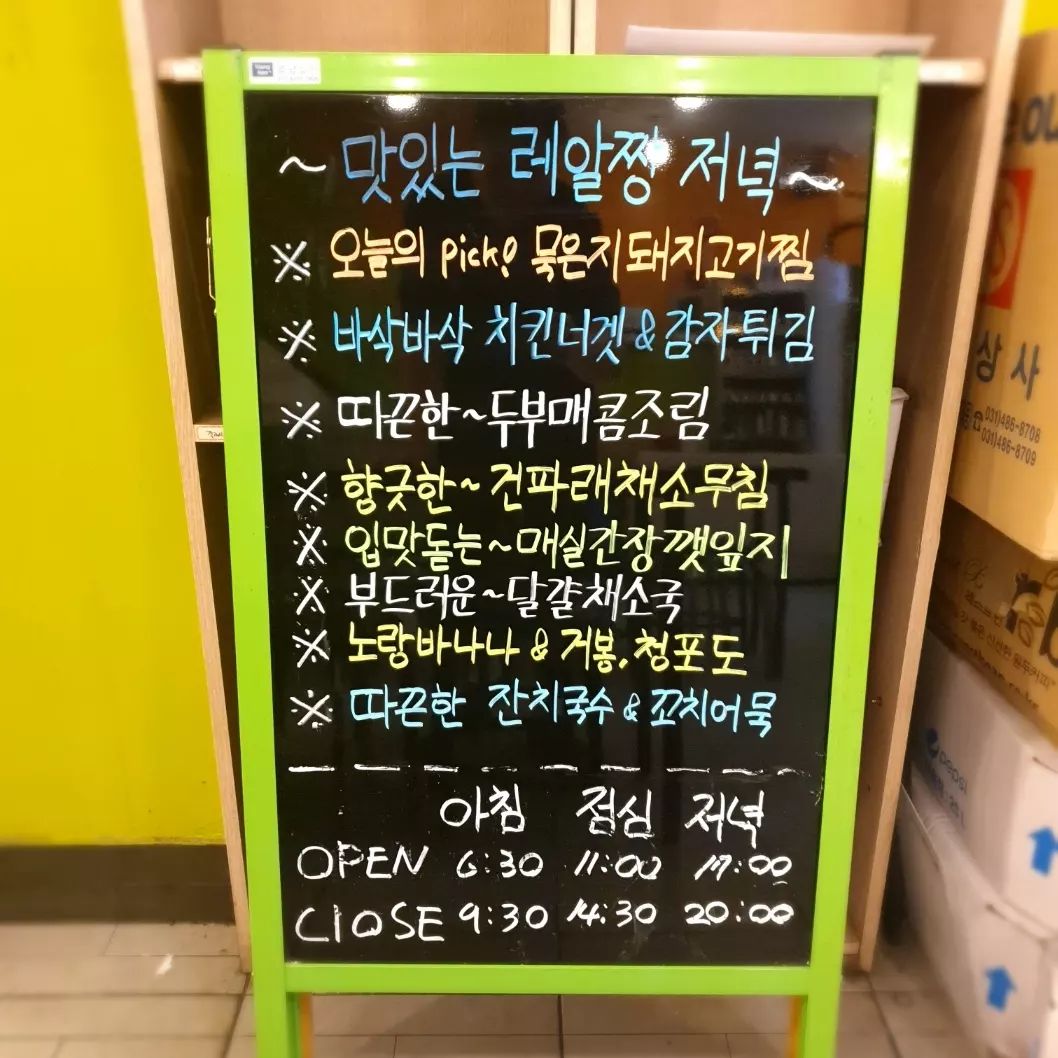 ~ 맛있는 레알짱 저녁 ~
※ 오늘의 pick! 묵은지돼지고기찜
※ 바삭바삭 치킨너겟 & 감자튀김
※ 따끈한~두부매콤조림
※ 향긋한~건파래채소무침
※ 입맛돋는~매실간장깻잎지
※ 부드러운~달걀채소국
※ 노랑바나나 & 거봉,청포도
※ 따끈한 잔치국수 & 꼬치어묵
아침 점심 저녁
OPEN 6:30 11:00 17:00
ClOSE 9:30 14:30 20:00
상사
031)486-8708
031)486-8709
pepsi